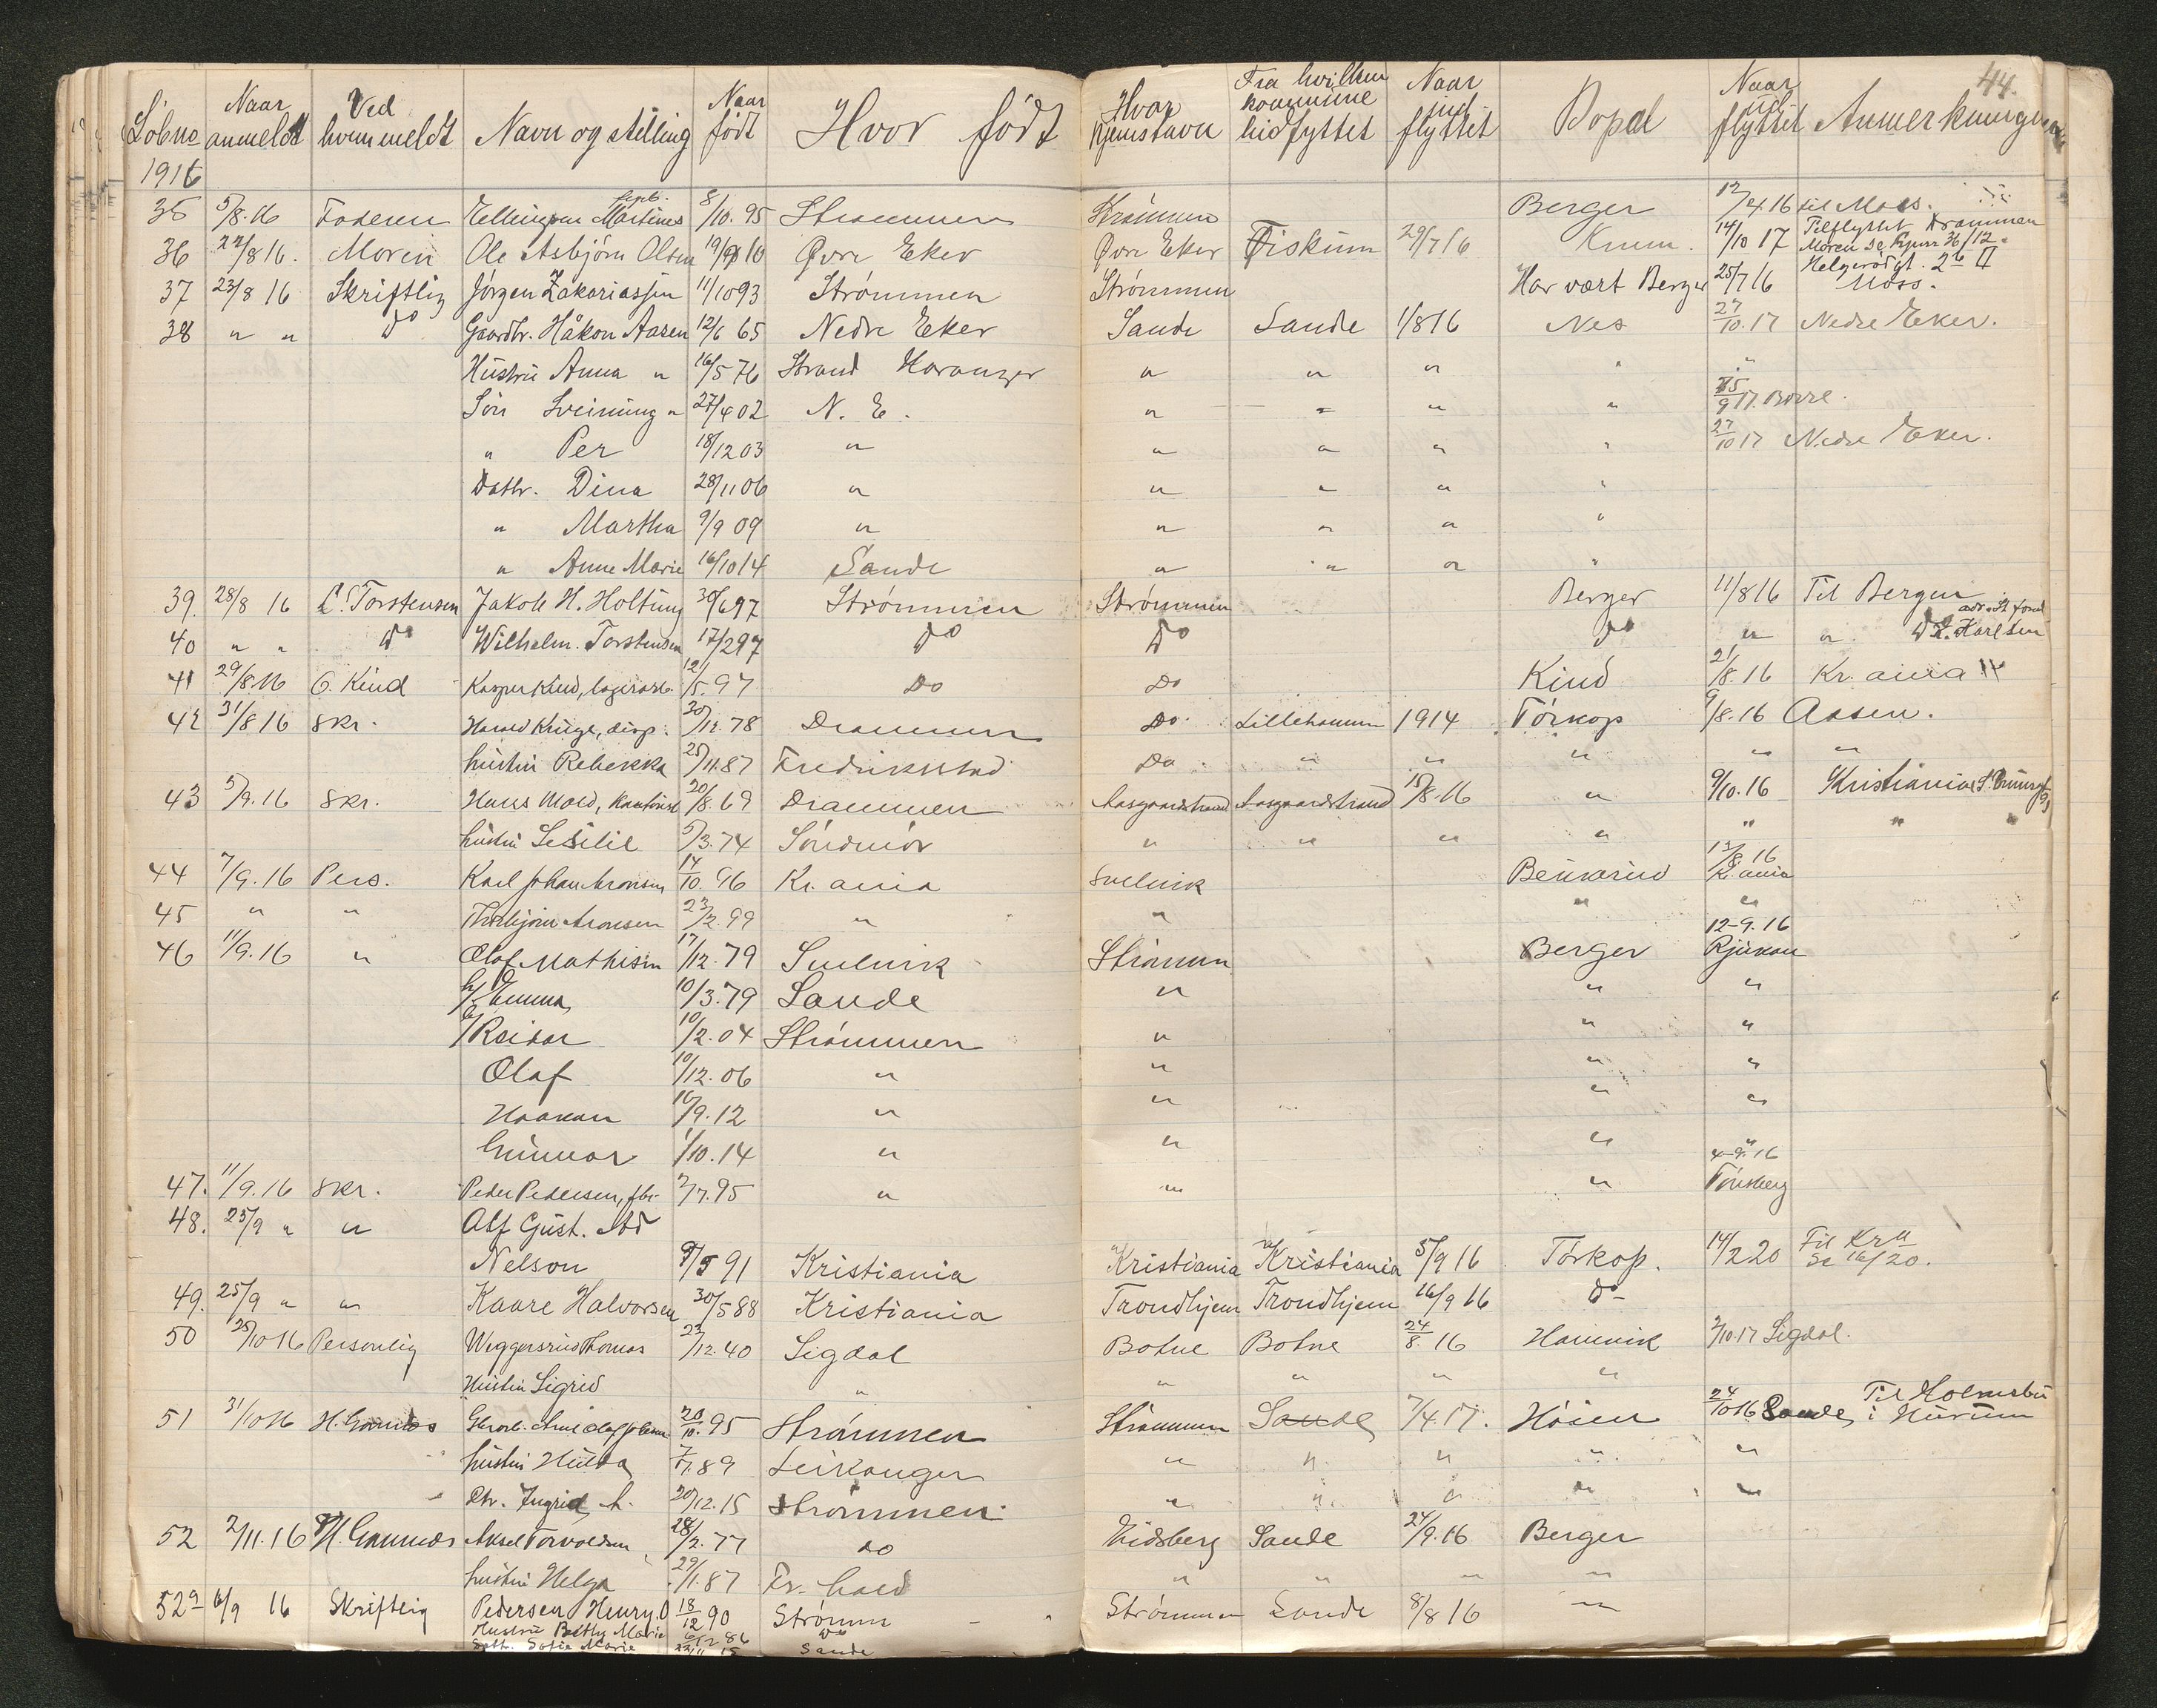 44.
Löbnr Naar anmeldt Ved hvem meldt Navn og stilling Naar født Hvor født Hvor hjemstavn Fra hvilken kommune hidflyttet Naar indflyttet Bopæl Naar udflyttet Anmerkninger
1916
35 5/8.16 Faderen Ellingsen Martinus 8/10.95 Strømmen Strømmen Berger 12/4.16 til Moss.
36 22/8 16. Moren Ole Asbjørn Olsen 19/9 10 Øvre Eker Øvre Eker Fiskum 29/7 16 Knem. 14/10 17 Tilflyttet Drammen
37 23/8 16 Skriftlig Jørgen Zakariassen 11/10 93 Strømmen Strømmen Har vært Berger 25/7 16 Moss.
38 " " Do Gaardbr. Håkon Aasen 12/6 65 Nedre Eker Sande Sande 1/8 16 Nes 27/10.17 Nedre Eker.
Hustru Anna " 16/5 76 Strand " " " " "
Søn Sveinung " 27/4 02 N. E. " " " " 15/9 17. Borre.
" Per 18/12 03 " " " " " 27/10 17 Nedre Eker.
Dattr. Dina 28/11 06 " " " " "
" Martha 9/9 09 " " " " "
" Anne Marie 16/10 14 Sande " " " "
39. 28/8 16 L. Torstensen Jakob H. Holtung 30/6 97 Strømmen Strømmen Berger 11/8 16 Til Bergen
40 " " Do Wilhelm. Torstensen 17/2 97 Do Do Do " " Do Karlsen
41 29/8.16 O. Kind Kasper Kind, lagerarb. 12/5.97 Do Do Kind 21/8.16 Kr.ania
42 31/8 16 Skr. Harald Krüge, disp. 30/12.78 Drammen Do. Lillehammer 1914 Tørkop 9/8.16 Aasen.
hustru Rebekka 25/11.87 Fredriksstad Do " " " " "
43 5/9.16 Skr. Hans Mold, kontorist 20/8.69 Drammen Aasgaardstrand Aasgaardstrand 15/8.16 " 9/10.16 Kristiania
hustru Sesilie 5/3.74 Söndmör " " " " " " "
44 7/9.16 Pers. Karl Johan Aronsen 14/10.96 Kr.ania Svelvik 13/8.16 Kr.ania
45 " " Thorbjörn Aronsen 23/2.99 " " " "
46 11/9.16 " Olaf Mathisen 17/12.79 Svelvik Strömmen Berger 12-9.16 Rjukan
Emma 10/3.79 Sande " " "
Reidar 10/2.04 Strömmen " " "
Olaf 10/12.06 " " " "
Haakon 16/9.12 " " " "
Gunnar 1/10.14 " " " "
47. 11/9.16 Skr. Peder Pedersen, fbr. 2/7.95 " " " 4-9.16 Tönsberg
48. 25/9 " " Alf Gust. Ad
Nelson 9/5 91 Kristiania Kristiania Kristiania 5/9 16 Tørkop. 14/2 20 Til Kra Se 16/20.
49. 25/9 " " Kaare Halvorsen 30/5 88 Kristiania Trondhjem Trondhjem 16/9 16 Do
50 25/10 16 Personlig Weggersrud Thomas 23/12.40 Sigdal Botne Botne 24/8.16 Havnvik 2/10.17 Sigdal.
Hustru Sigrid " " " " "
51 31/10 16 20/10.95 Strömmen Strömmen Sande 7/4.17. Höien 24/10 16 Sande, Til Holmsbu i Hurum
hustru Hulda 7/7.89 Leikanger " " " " "
Dtr. Ingrid 20/12.15 Strömmen " " " " "
52 2/11.16 Aksel Torvaldsen 28/2.77 Do Eidsberg Sande 24/9.16 Berger
hustru Helga 29/1.87 Fr.hald " " " "
52a 6/9 16 Skriftlig Pedersen Henry O 18/12 90 Strømm Strømmen Sande 8/8 16 "
Hustru Betty Marie 86 Do
Datt. Sofie Marie Sande